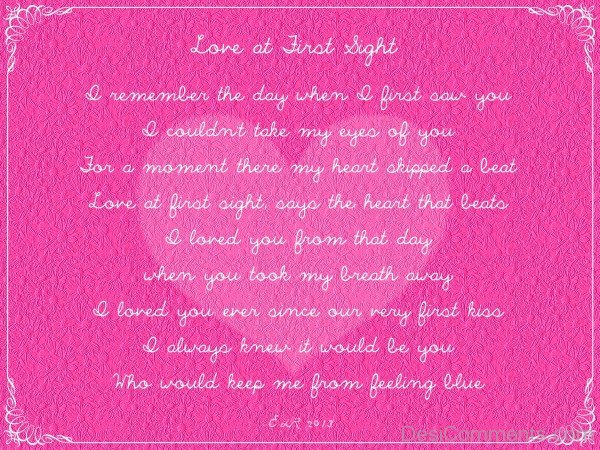 Love at First Sight
I remember the day when I first saw you
I couldn't take my eyes of you
For a moment there my heart skipped a beat
Love at first sight, says the heart that beats
I loved you from that day
when you took my breath away
I loved you ever since our very first kiss
I always knew it would be you
Who would keep me from feeling blue
2013
DesiComments.com